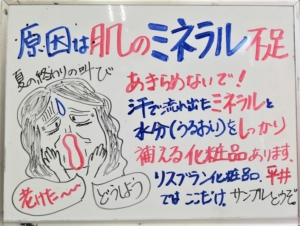 原因は肌のミネラル不足
夏の終わりの叫び
あきらめないで!
汗で流れ出たミネラルと
水分(うるおい)をしっかり
補える化粧品あります。
リスブラン化粧品、平井
ではここだけ、サンプルどうぞ
老けた〜〜
どうしよう